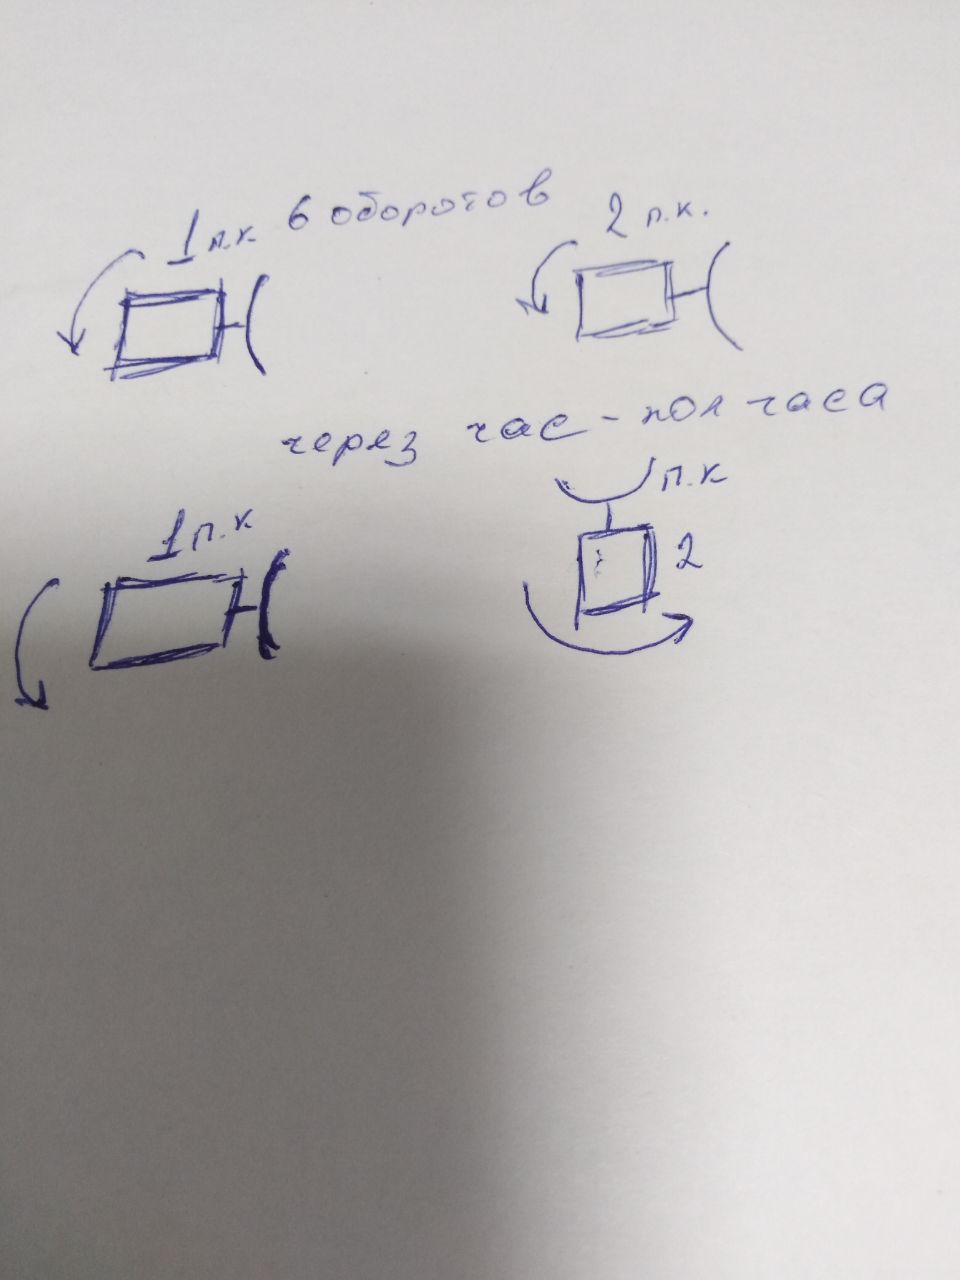 1 п.к. 6 оборотов
2 п.к.
через час - пол часа
1 п.к
п.к
2